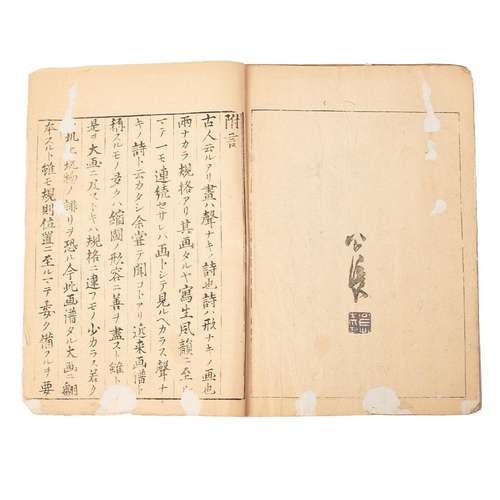 附言
古人云ルアリ畫ハ聲ナキノ詩也詩ハ形ナキノ画也
兩ナカラ規格アリ其画タルヤ寫生風韻ニ至ル
マテ一モ連続セサレハ画トシテ見ルヘカラス聲ナ
キノ詩ト云カタシ余嘗テ聞コトアリ近来画譜ト
稱スルモノ多クハ縮圖ノ形容ニ善ヲ盡スト雖ト
是ヲ大画ニ及ストキハ規格ニ違フモノ少カラス若クハ
机上玩物ノ誹リヲ恐ル今此画譜タル大画ニ翻
本スルト雖モ規則位置ニ至ルマテ委ク備フルヲ要
公長